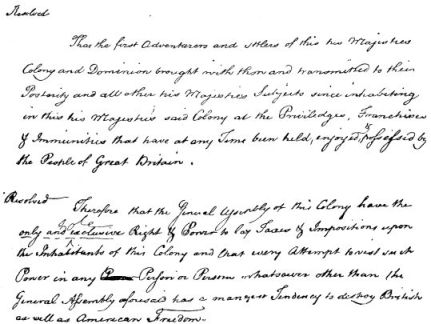 Resolved
That the first Adventurers and settlers of this his Majesties
Colony and Dominion brought with them and transmitted to their
Posterity and all other his Majesties Subjects since inhabiting
in this his Majesties said Colony all the Priviledges, Franchises
& Immunities that have at any Time been held, enjoyed, & possessed by
the People of Great Britain.
Resolved
Therefore that the General Assembly of this Colony have the
only and exclusive Right & Power to lay Taxes & Impositions upon
the Inhabitants of this Colony and that every Attempt to vest such
Power in any Person or Persons whatsoever other than the
General Assembly aforesaid has a manifest Tendency to destroy British
as well as American Freedom.